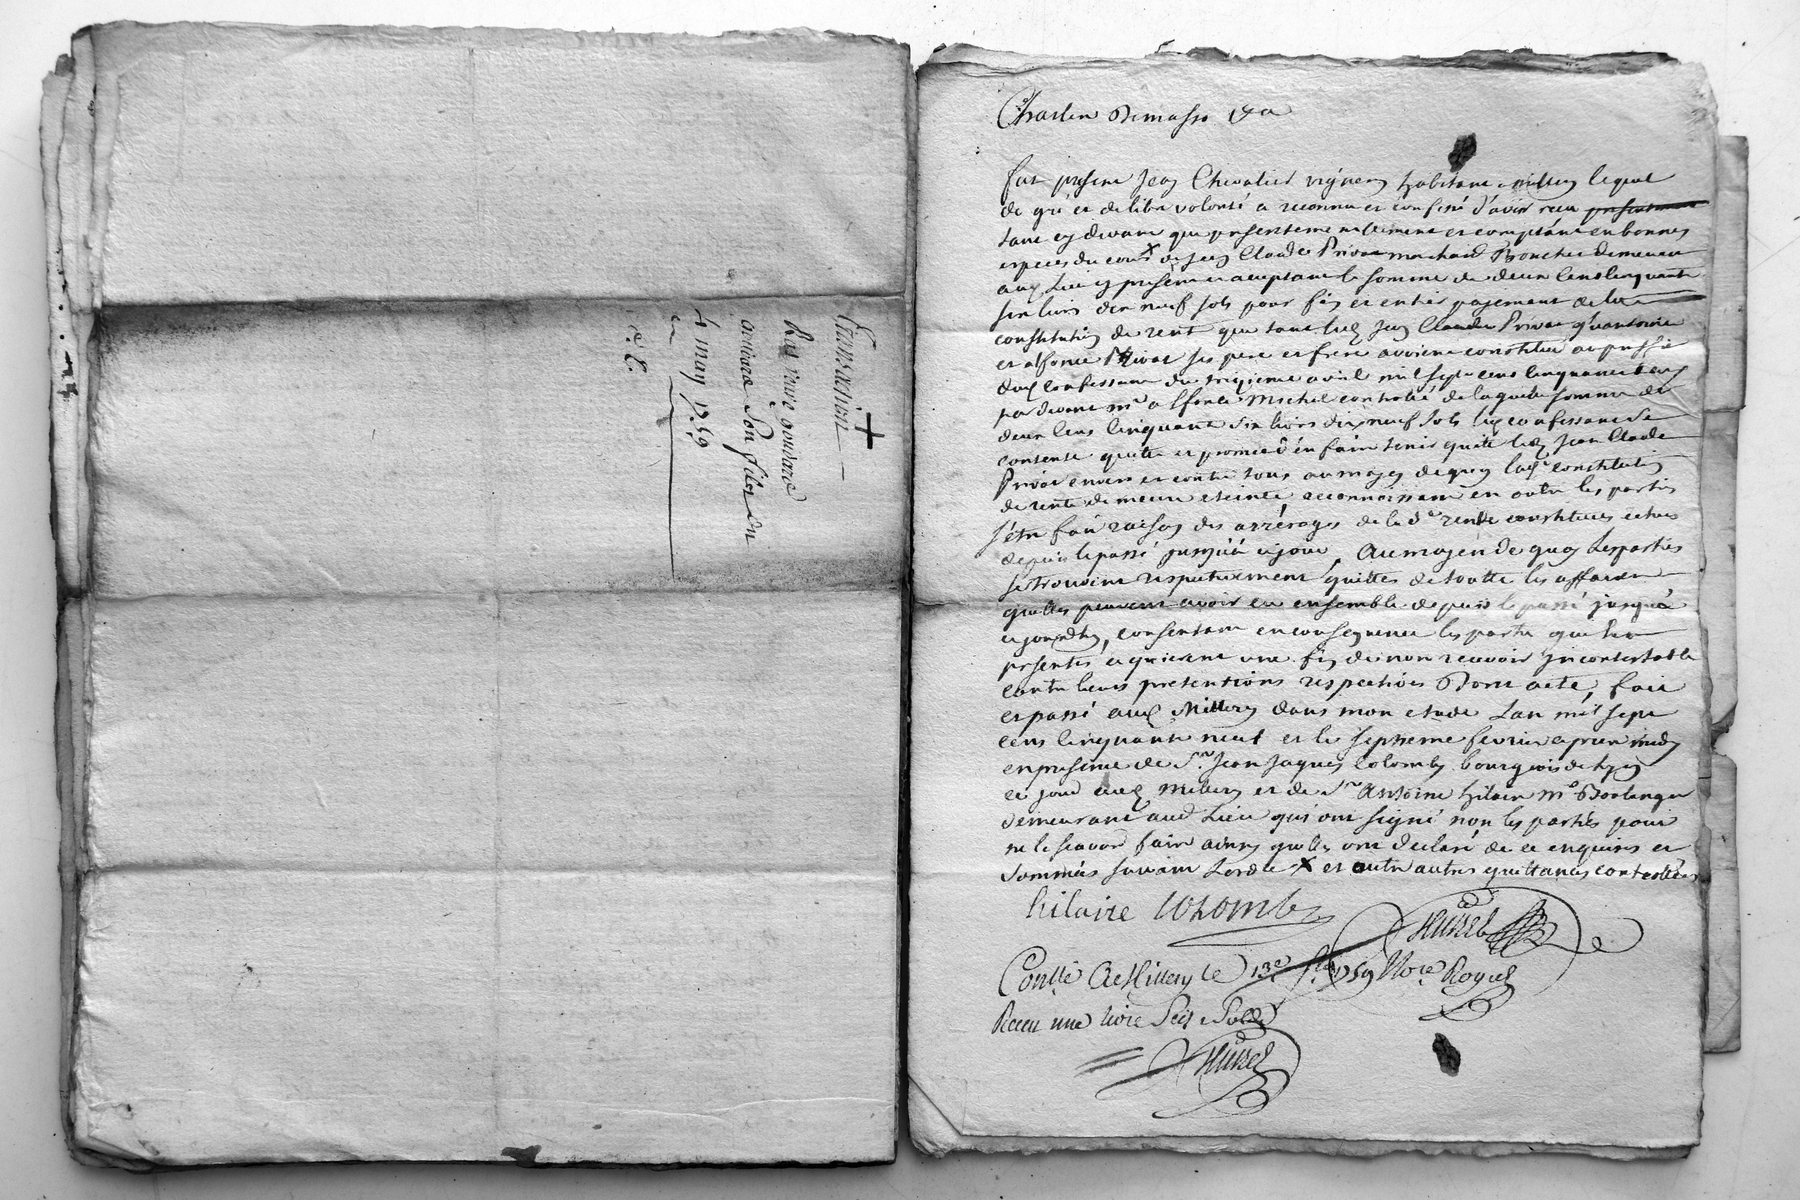 Transaction
Entre
son fils du
4 may 1759
Charles Demasso
fut present Jean Chevalier vigneron habitant a millery lequel
de gré et de libre volonté a reconnu et confessé d'avoir receu
tant cy devant que presentement reellement et comptant en bonnes
especes du cours x de Jean Claude Privat marchand Boucher demeurant
aud. Lieu cy present et acceptant la somme de deux cens cinquante
six livres dix neuf sols pour fin et entier payement de la
constitution de rente que tant led. Jean Claude Privat qu'antoine
et alfonce Privat ses pere et frere avoient constitué au profit
dud. confessant du treizieme avril mil sept cens cinquante deux
par devant me alfonce Michel controllé de laquelle somme de
deux cens cinquante six livres dix neuf sols led. confessant se
contente quitte et promet d'en faire tenir quitte led. Jean Claude
Privat envers et contre tous au moyen de quoy lad. constitution
de rente demeure eteinte, reconnoissant en outre les parties
s'etre fait raison des arrérages de la de rente constituée echus
depuis le passé jusqu'à ce jour, Au moyen de quoy les parties
se trouvent respectivement quittes de toutte les affaires
qu'elles peuvent avoir eu ensemble depuis le passé jusqu'à
ce jourdhuy, consentant en consequence les parties que les
presentes acquierent une fin de non recevoir incontestable
contre leurs pretentions respectives Dont acte, fait
et passé aud. Millery dans mon etude L'an mil sept
cens cinquante neuf et le septieme fevrier apres midy
en presence de Sr. Jean Jaques Colomb bourgeois de Lyon
ce jour aud. millery et de Sr Antoine hilaire me Boulanger
demeurant aud. Lieu qui ont signé non les parties pour
ne le scavoir faire ainsy qu'elles ont declaré de ce enquises et
sommées suivant Lord.e x et outre autres quittances controllées
hilaire Colomb
Contlé A Millery Le 13e fer. 1759 Nore. Royal
Receu une livre Seis Sols